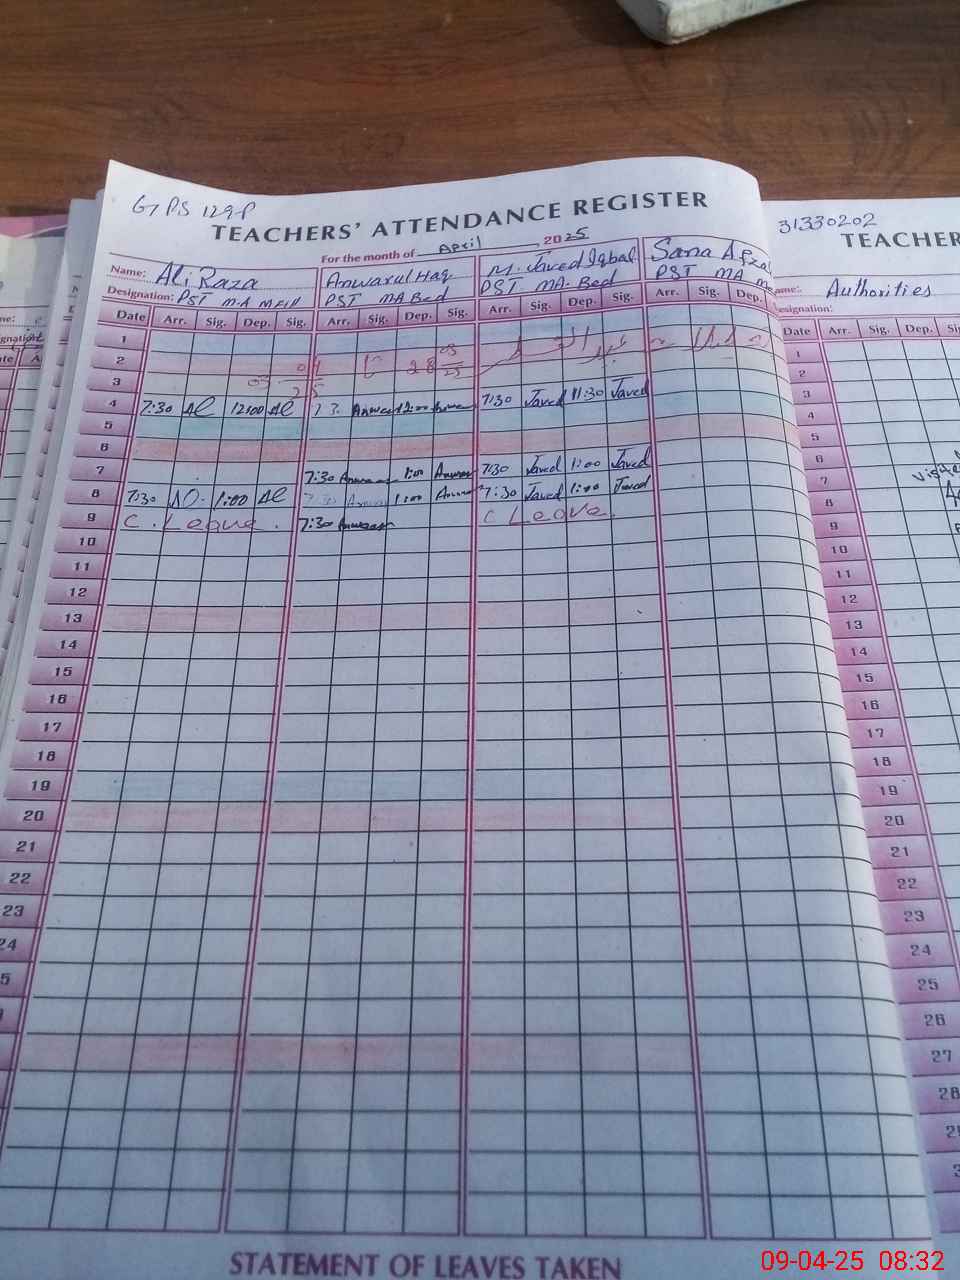 G7 PS 129-P
TEACHERS' ATTENDANCE REGISTER
For the month of April, 2025
Name: Ali Raza Anwarul Haq M. Javed Iqbal Sana Afzal
Designation: PST M.A M Fill PST MA Bed PST MA. Bed PST MA
Date Arr. Sig. Dep. Sig. Arr. Sig. Dep. Sig. Arr. Sig. Dep. Sig. Arr. Sig. Dep.
1
2 03 04 25 تا 28 03 25 عید الفطر
3
4 7:30 12:00 Anwaar 12:00 7:30 Javed 11:30 Javed
5
6
7 7:30 Anwaar 1:00 Anwaar 7:30 Javed 1:00 Javed
8 7:30 1:00 7:30 Anwaar 1:00 Anwaar 7:30 Javed 1:00 Javed
9 C. Leave. 7:30 Anwaar C Leave.
10
11
12
13
14
15
16
17
18
19
20
21
22
23
24
STATEMENT OF LEAVES TAKEN
31330202
TEACHER
Authorities
Date Arr. Sig. Dep.
1
2
3
4
5
6
7
8
9
10
11
12
13
14
15
16
17
18
19
20
21
22
23
24
25
26
27
28
09-04-25 08:32